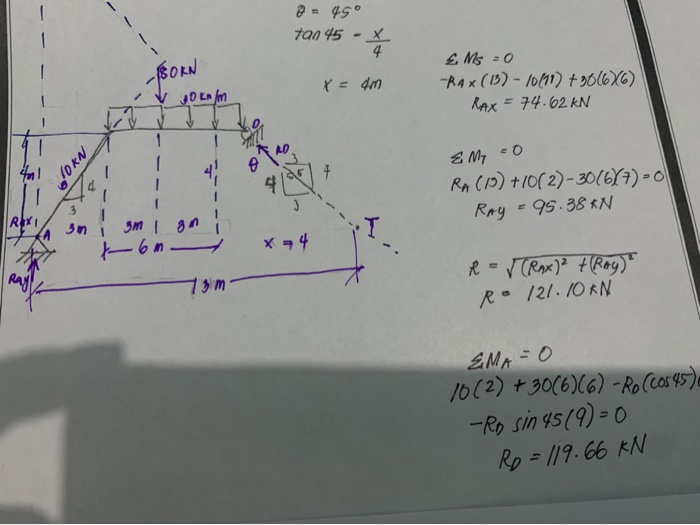 θ = 45°
tan 45 - x/4
x = 4m
ΣMS = 0
-RAX(13) - 10(11) + 30(6)(6)
RAX = 74.62 kN
ΣMT = 0
RA(13) + 10(2) - 30(6)(7) = 0
RAY = 95.38 kN
R = √(RAX)² + (RAY)²
R = 121.10 kN
ΣMA = 0
10(2) + 30(6)(6) - RD(cos 45)
-RD sin 45(9) = 0
RD = 119.66 kN
80KN
30 KN/m
10 KN
4m
4
3
RAX
A
3m
3m
3m
6m
4
D
RD
θ
4
7
I
x = 4
RAY
13m